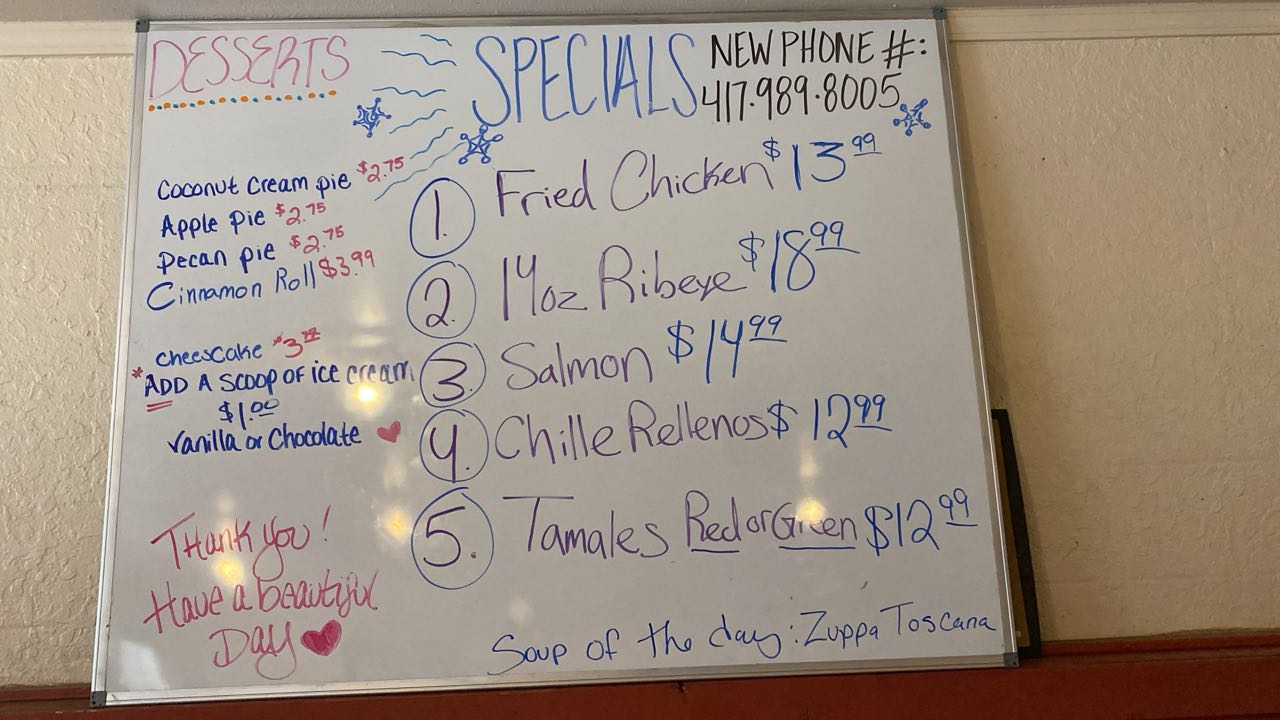 DESSERTS
Coconut Cream pie $2.75
Apple pie $2.75
Pecan pie $2.75
Cinnamon Roll $3.99
cheescake $3.99
*ADD A SCOOP OF ice cream
$1.00
vanilla or Chocolate
Thank you!
Have a beautiful
Day
SPECIALS
NEW PHONE #:
417.989.8005
1. Fried Chicken $13.99
2. 14oz Ribeye $18.99
3. Salmon $14.99
4. Chille Rellenos $12.99
5. Tamales Red or Green $12.99
Soup of the day: Zuppa Toscana